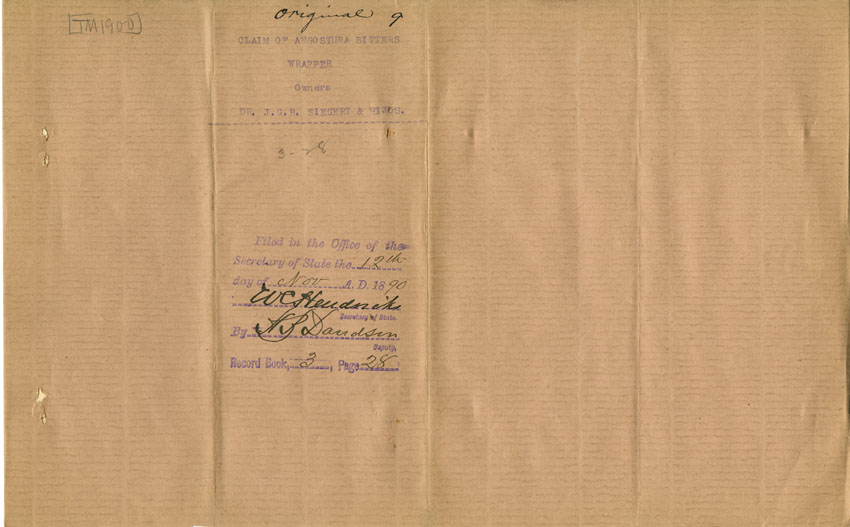 [TM1900]
Original 9
CLAIM OF ANGOSTURA BITTERS
WRAPPER
Owners
DR. J.G.B. SIEGERT & HIJOS.
3-28
Filed in the Office of the
Secretary of State the 12th
day of Nov A.D. 1890
W C Hendricks
Secretary of State.
By
Deputy.
Record Book, 3, Page 28